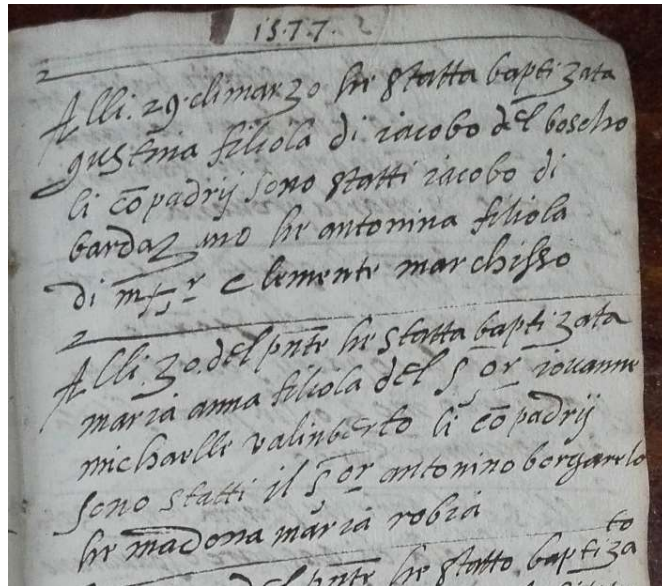 1577
Alli. 29. di marzo he statta baptizata
gustina filiola di iacobo del boscho
li cōpadrij sono statti iacobo di
bardaz ino he antonina filiola
di m͞s.r clemente marchisso
Alli. 30. del pn̄te he statta baptizata
maria anna filiola del S.or iouanne
michaelle valinberto li cōpadrij
sono statti il S.or antonino borgarelo
he madona maria robia
del pn̄te he statto baptizato